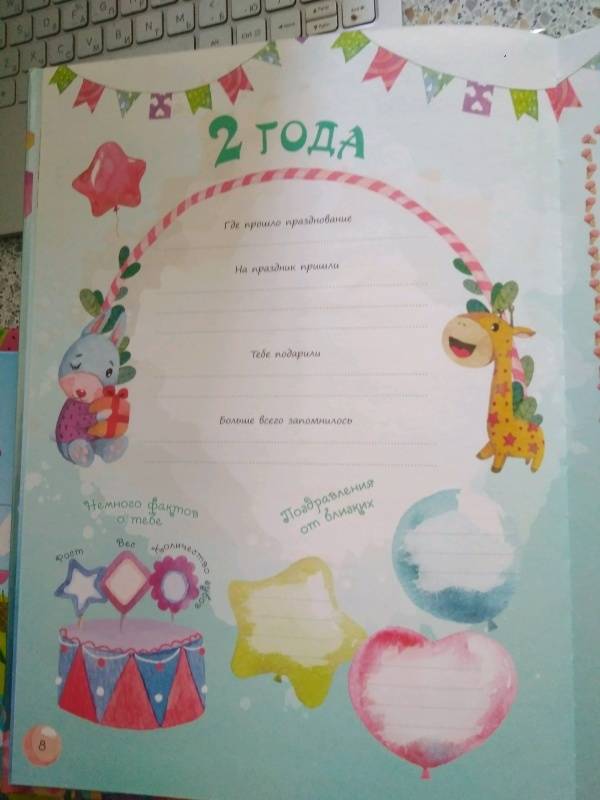 2 ГОДА
Где прошло празднование
На праздник пришли
Тебе подарили
Больше всего запомнилось
Немного фактов
о тебе
Поздравления
от близких
Рост
Вес
Количество зубов
8